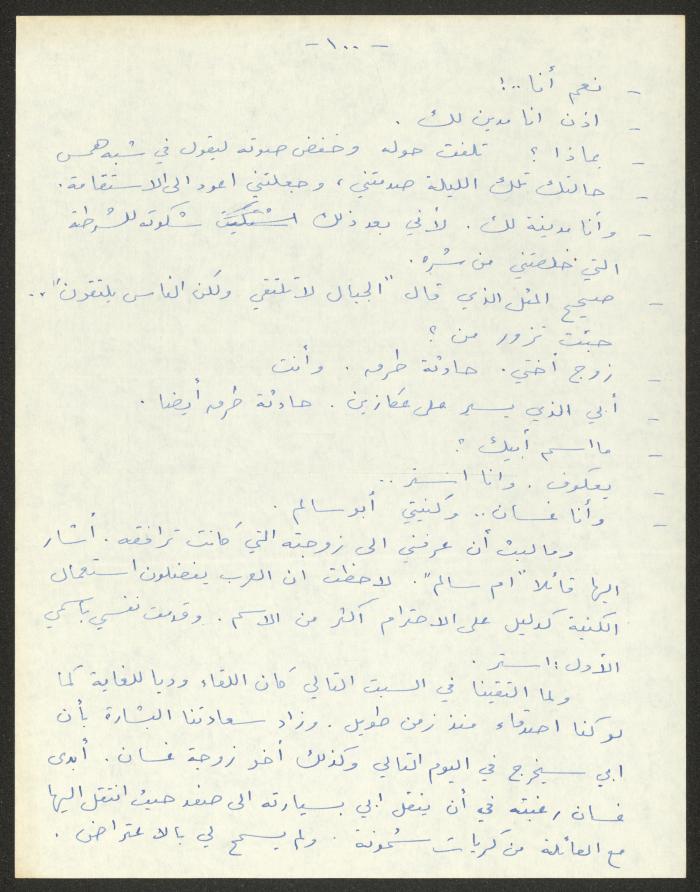 - ١٠٠ -
- نعم أنا..!
- اذن انا مدين لك .
- بماذا ؟ تلفت حوله وخفض صوته ليقول في شبه همس
- حالتك تلك الليلة صدمتني ، وجعلتني اعود الى الاستقامة .
- وأنا مدينة لك . لأني بعد ذلك اشتكيت شكوته للشرطة
التي خلصتني من شره .
- صحيح المثل الذي قال "الجبال لا تلتقي ولكن الناس يلتقون"..
جئت تزور من ؟
- زوج أختي . حادثة طرق . وأنت
- أبي الذي يسير على عكازين . حادثة طرق أيضا .
- ما اسم أبيك ؟
- يعكوف . وانا استر ..
- وأنا غسان .. وكنيتي أبو سالم .
وما لبث أن عرفني الى زوجته التي كانت ترافقه . أشار
اليها قائلا "ام سالم" . لاحظت ان العرب يفضلون استعمال
الكنية كدليل على الاحترام أكثر من الاسم . وقدمت نفسي باسمي
الأول : استر .
ولما التقينا في السبت التالي كان اللقاء وديا للغاية كما
لو كنا اصدقاء منذ زمن طويل . وزاد سعادتنا البشارة بأن
ابي سيخرج في اليوم التالي وكذلك أخو زوجة غسان . أبدى
غسان رغبته في أن ينقل ابي بسيارته الى صفد حيث انتقل اليها
مع العائلة من كريات شمونة . ولم يسمح لي بالاعتراض .